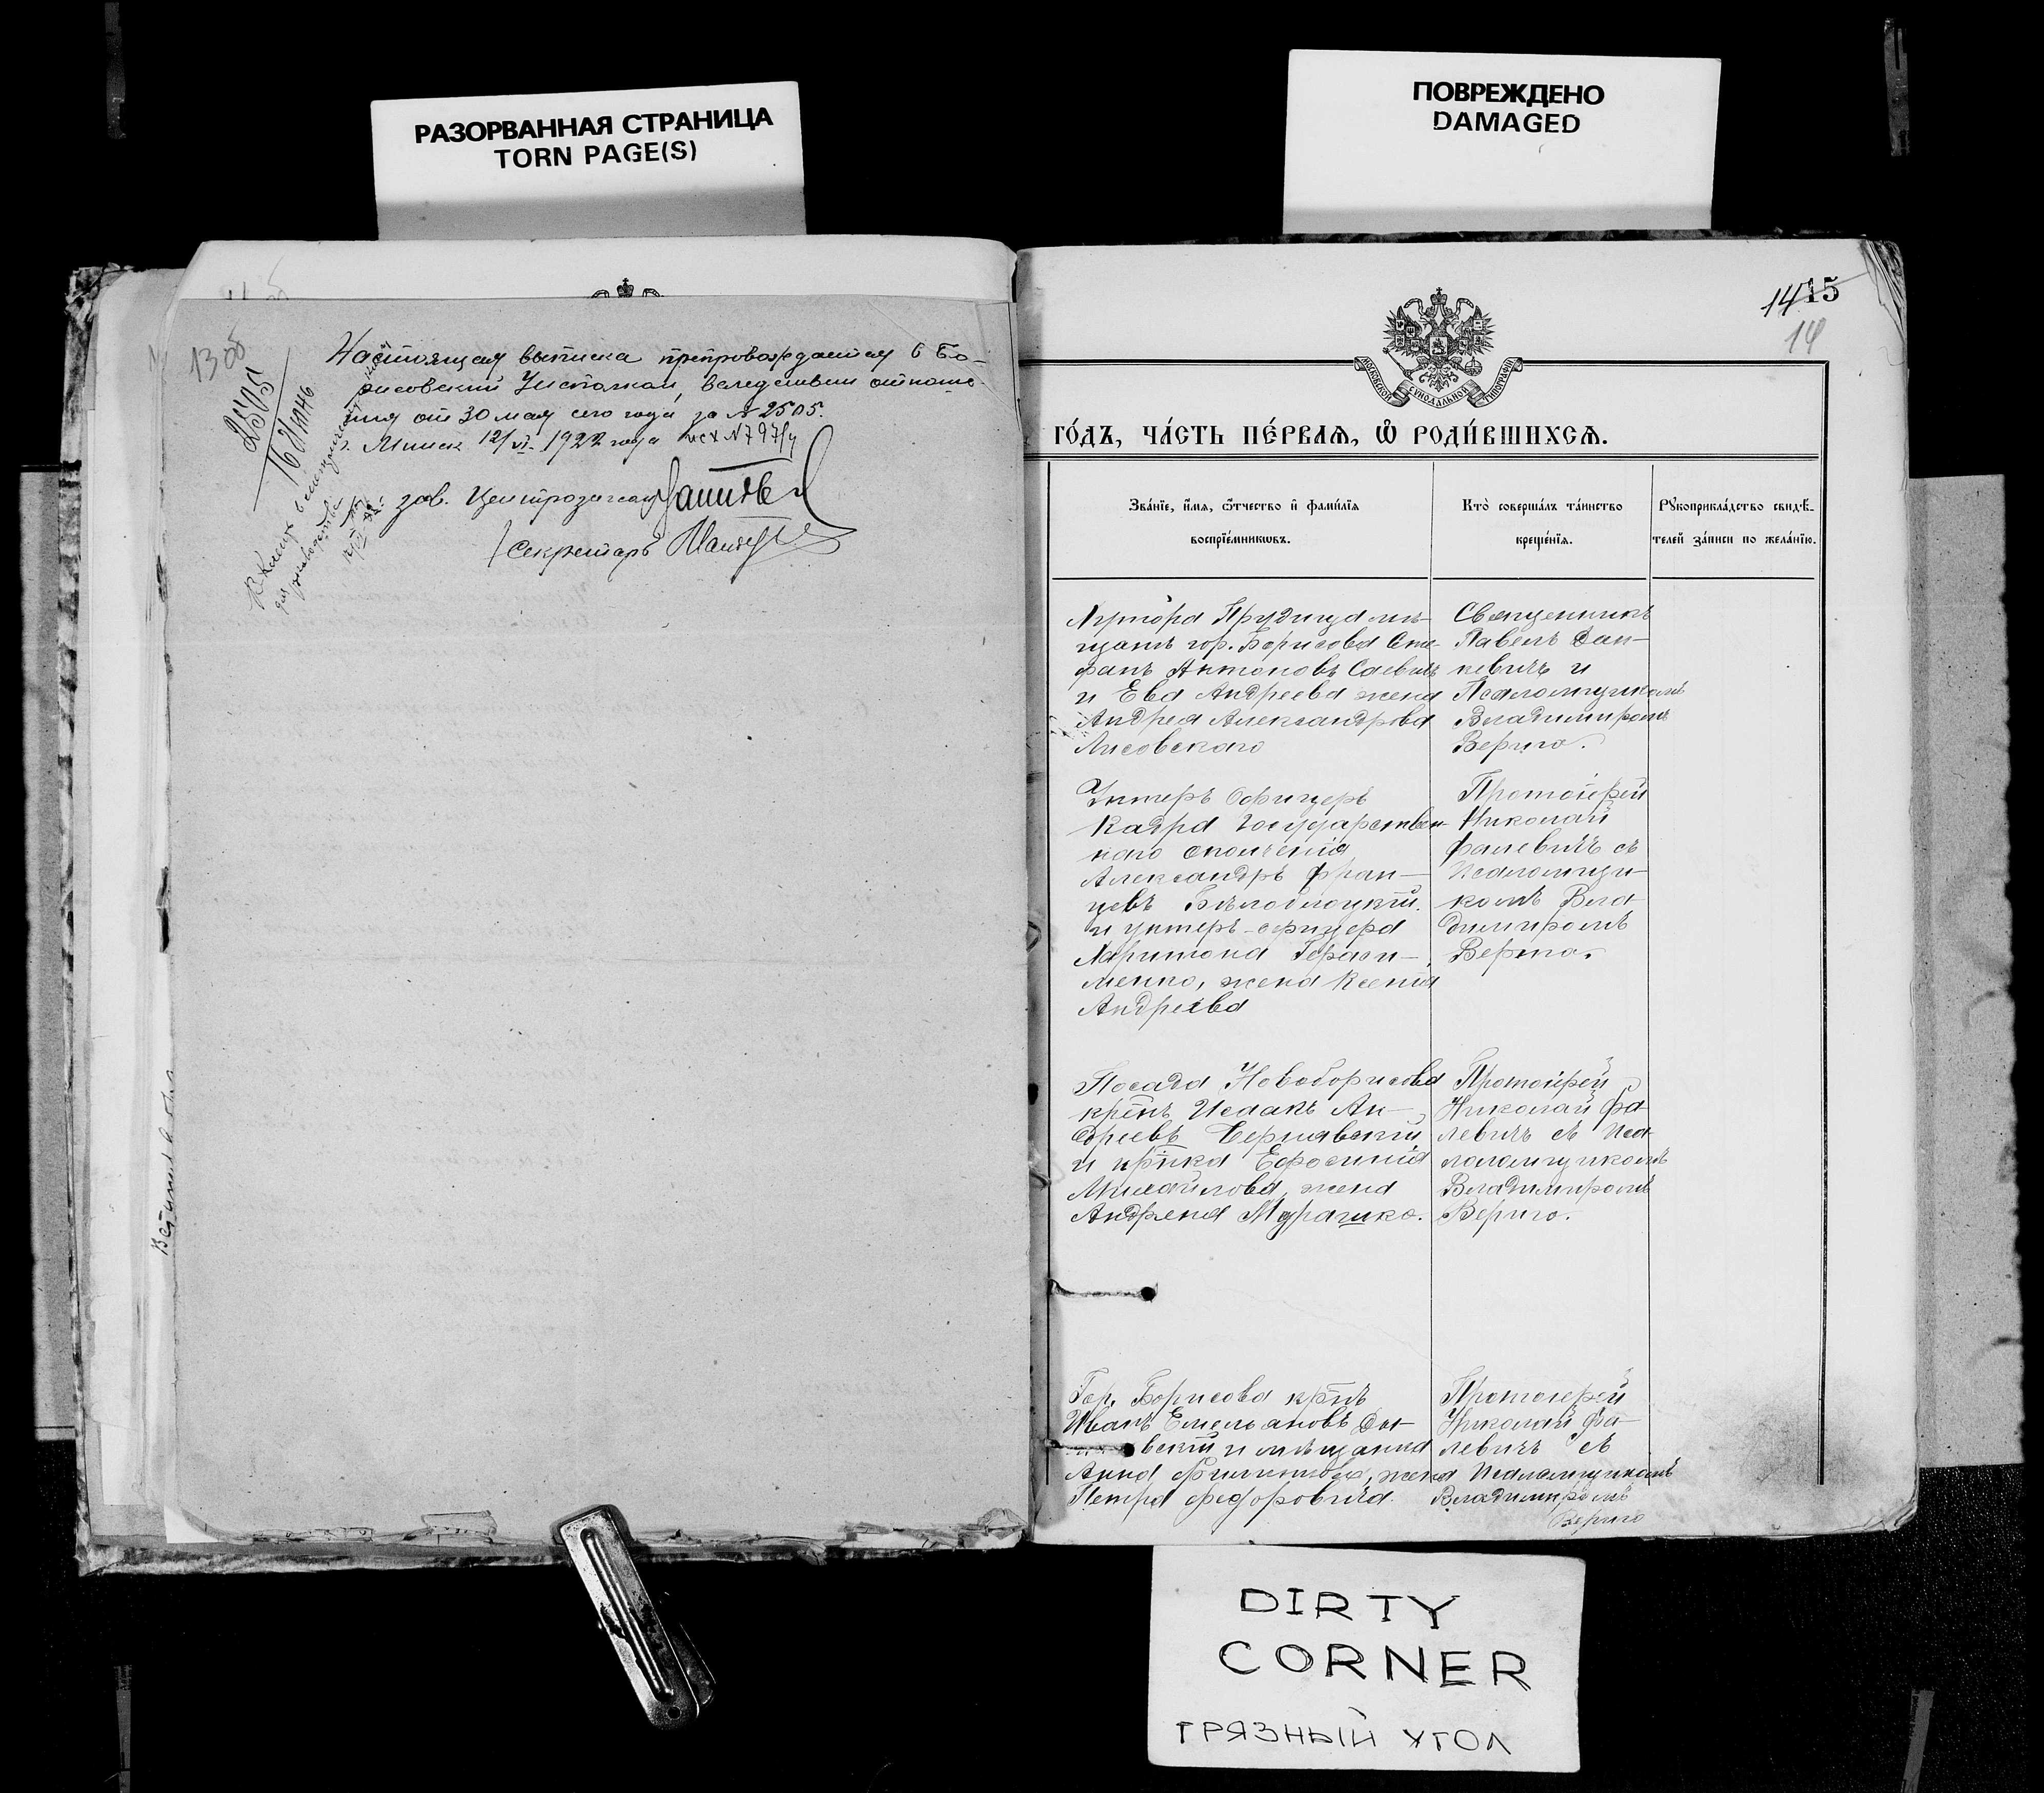 РАЗОРВАННАЯ СТРАНИЦА
TORN PAGE(S)
ПОВРЕЖДЕНО
DAMAGED
13 об
2505
16 июнь
Настоящая выписка препровождается в Бо-
рисовский Уисполком, вследствии отноше-
ния от 30 мая сего года за № 2505.
г. Минск 12/VI 1922 года исх № 797/ч
зав. Центрозагсом
Секретарь
14 15
14
МОСКОВСКОЙ СѴНОДАЛЬНОЙ ТИПОГРАФІИ
ГО́ДЪ, ЧА́СТЬ ПЕ́РВАЯ, Ѡ҆ РОДИ́ВШИХСЯ.
Зва́нїе, и҆́мя, ѻ҆́тчество и҆ фами́лїя
воспрїе́мникѡвъ.
Кто̀ соверша́лъ та́инство
креще́нїя.
Рꙋкоприкла́дство свидѣ́-
телей за́писи по жела́нїю.
Хутора Прудища мѣ-
щанъ гор. Борисова Сте-
фанъ Антоновъ Саевичъ
и Ева Андреева жена
Андрея Александрова
Лисовскаго
Священникъ
Павелъ Дан-
кевичъ и
Псаломщикомъ
Владимиромъ
Верига.
Унтеръ Офицеръ
Кадра Государствен-
наго ополченія
Александръ Фран-
цевъ Бѣлоблоцкій
и унтеръ-офицера
Харитона Гераси-
менко, жена Ксенія
Андреева
Протоіерей
Николай
Фалевичъ съ
Псаломщи-
комъ Вла-
димиромъ
Верига.
Посада Новоборисова
кр̃нъ Исаакъ Ан-
дреевъ Чернявскій
и кр̃нка Ефросинія
Михайлова, жена
Андрея Мурашко.
Протоіерей
Николай Фа-
левичъ съ Пса-
ломщикомъ
Владимиромъ
Верига.
Гор. Борисова кр̃нъ
Иванъ Емельяновъ
вскій и мѣщанка
Анна жена
Петра Федоровича.
Протоіерей
Николай Фа-
левичъ съ
Псаломщикомъ
Владимиромъ
Верига
DIRTY
CORNER
ГРЯЗНЫЙ УГОЛ